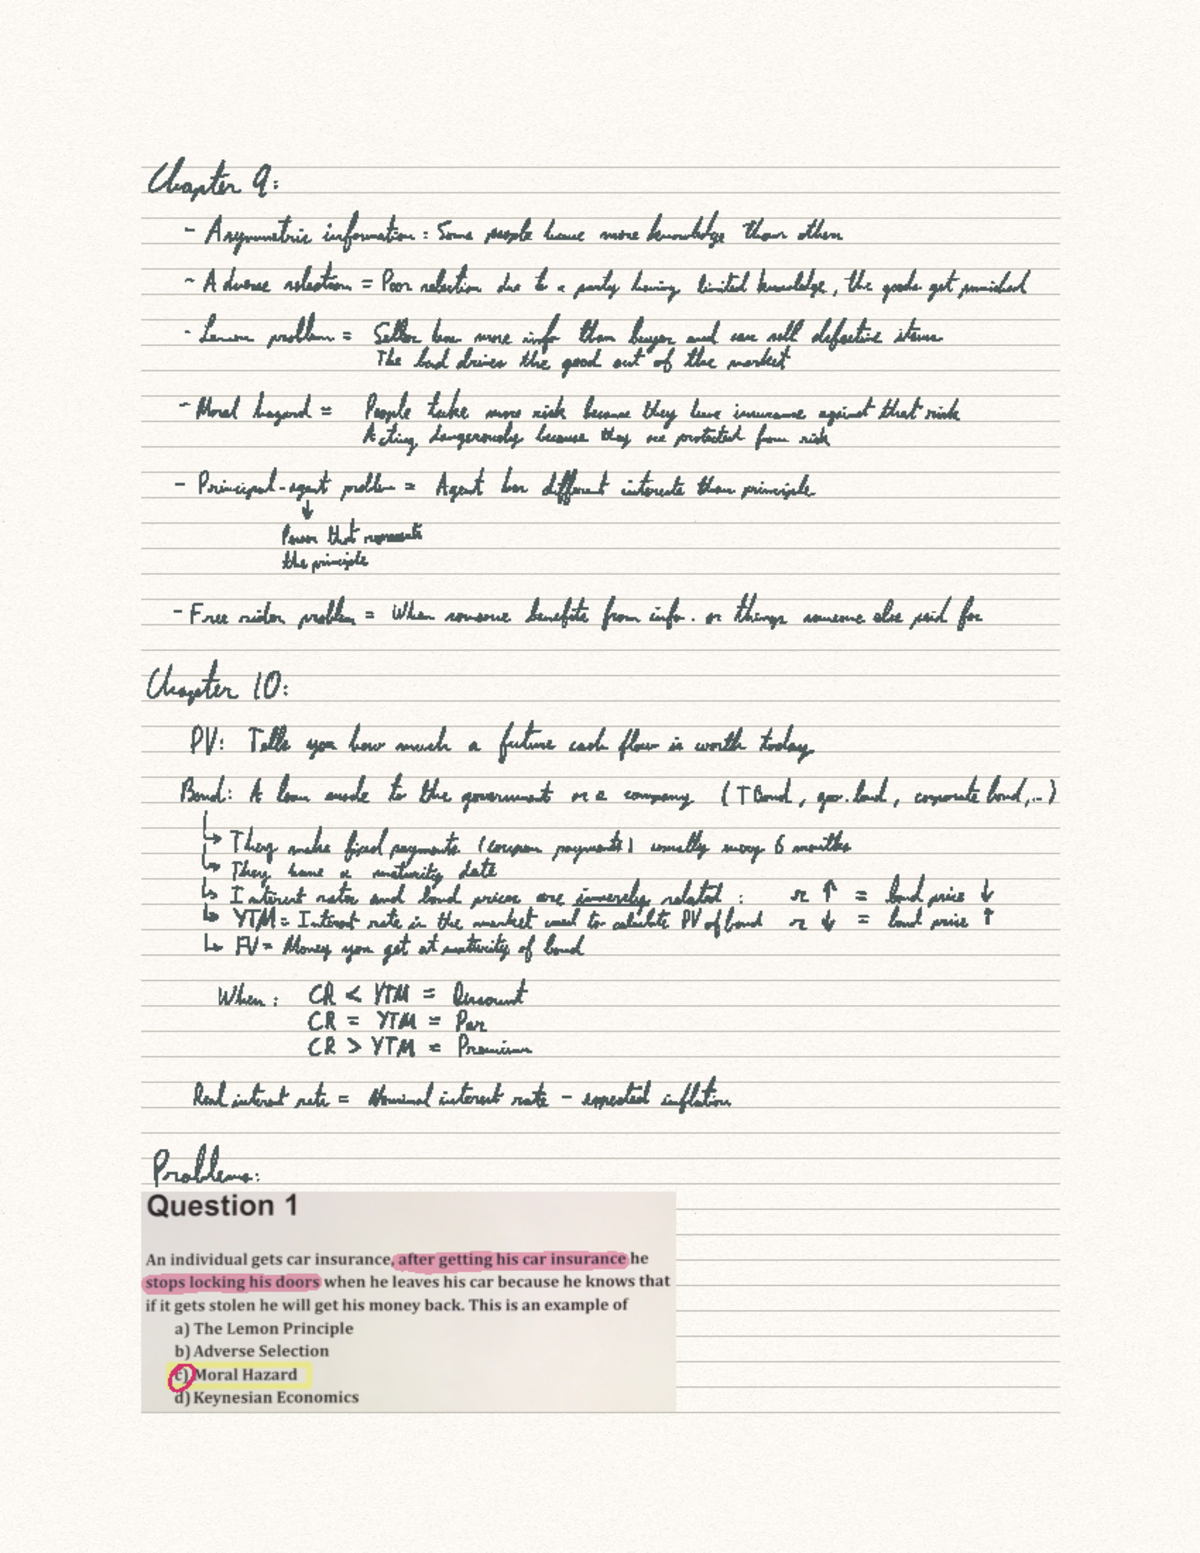 Chapter 9:
- Asymmetric information : Some people have more knowledge than others
- Adverse selection = Poor selection due to a party having limited knowledge, the goods get punished
- Lemon problem = Seller has more info than buyer and can sell defective items
The bad drives the good out of the market
- Moral hazard = People take more risk because they have insurance against that risk
Acting dangerously because they are protected from risk
- Principal-agent problem = Agent has different interests than principle
↓
Person that represents
the principle
- Free rider problem = When someone benefits from info. or things someone else paid for
Chapter 10:
PV: Tells you how much a future cash flow is worth today
Bond: A loan made to the government or a company (T Bond, gov. bond, corporate bond,...)
↳ They make fixed payments (coupon payments) usually every 6 months
↳ They have a maturity date
↳ Interest rates and bond prices are inversely related : r ↑ = bond price ↓
↳ YTM = Interest rate in the market used to calculate PV of bond r ↓ = bond price ↑
↳ FV = Money you get at maturity of bond
When: CR < YTM = Discount
CR = YTM = Par
CR > YTM = Premium
Real interest rate = Nominal interest rate - expected inflation
Problems:
Question 1
An individual gets car insurance, after getting his car insurance he
stops locking his doors when he leaves his car because he knows that
if it gets stolen he will get his money back. This is an example of
a) The Lemon Principle
b) Adverse Selection
c) Moral Hazard
d) Keynesian Economics